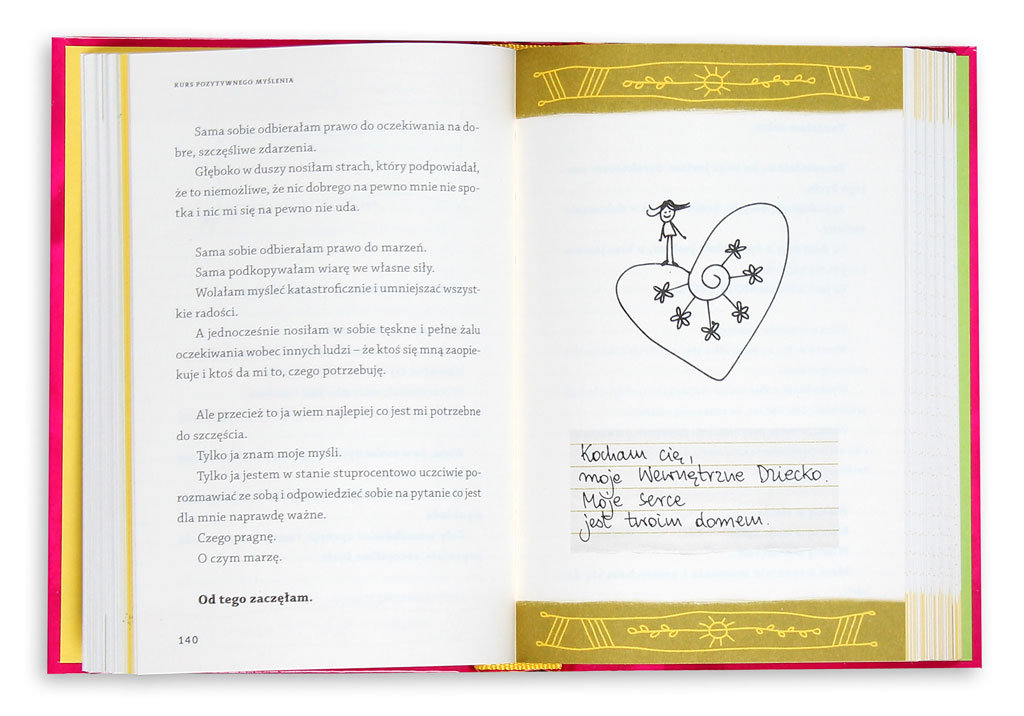 KURS POZYTYWNEGO MYŚLENIA
Sama sobie odbierałam prawo do oczekiwania na do-
bre, szczęśliwe zdarzenia.
Głęboko w duszy nosiłam strach, który podpowiadał,
że to niemożliwe, że nic dobrego na pewno mnie nie spo-
tka i nic mi się na pewno nie uda.
Sama sobie odbierałam prawo do marzeń.
Sama podkopywałam wiarę we własne siły.
Wolałam myśleć katastroficznie i umniejszać wszyst-
kie radości.
A jednocześnie nosiłam w sobie tęskne i pełne żalu
oczekiwania wobec innych ludzi – że ktoś się mną zaopie-
kuje i ktoś da mi to, czego potrzebuję.
Ale przecież to ja wiem najlepiej co jest mi potrzebne
do szczęścia.
Tylko ja znam moje myśli.
Tylko ja jestem w stanie stuprocentowo uczciwie po-
rozmawiać ze sobą i odpowiedzieć sobie na pytanie co jest
dla mnie naprawdę ważne.
Czego pragnę.
O czym marzę.
Od tego zaczęłam.
140
Kocham cię,
moje Wewnętrzne Dziecko.
Moje serce
jest twoim domem.